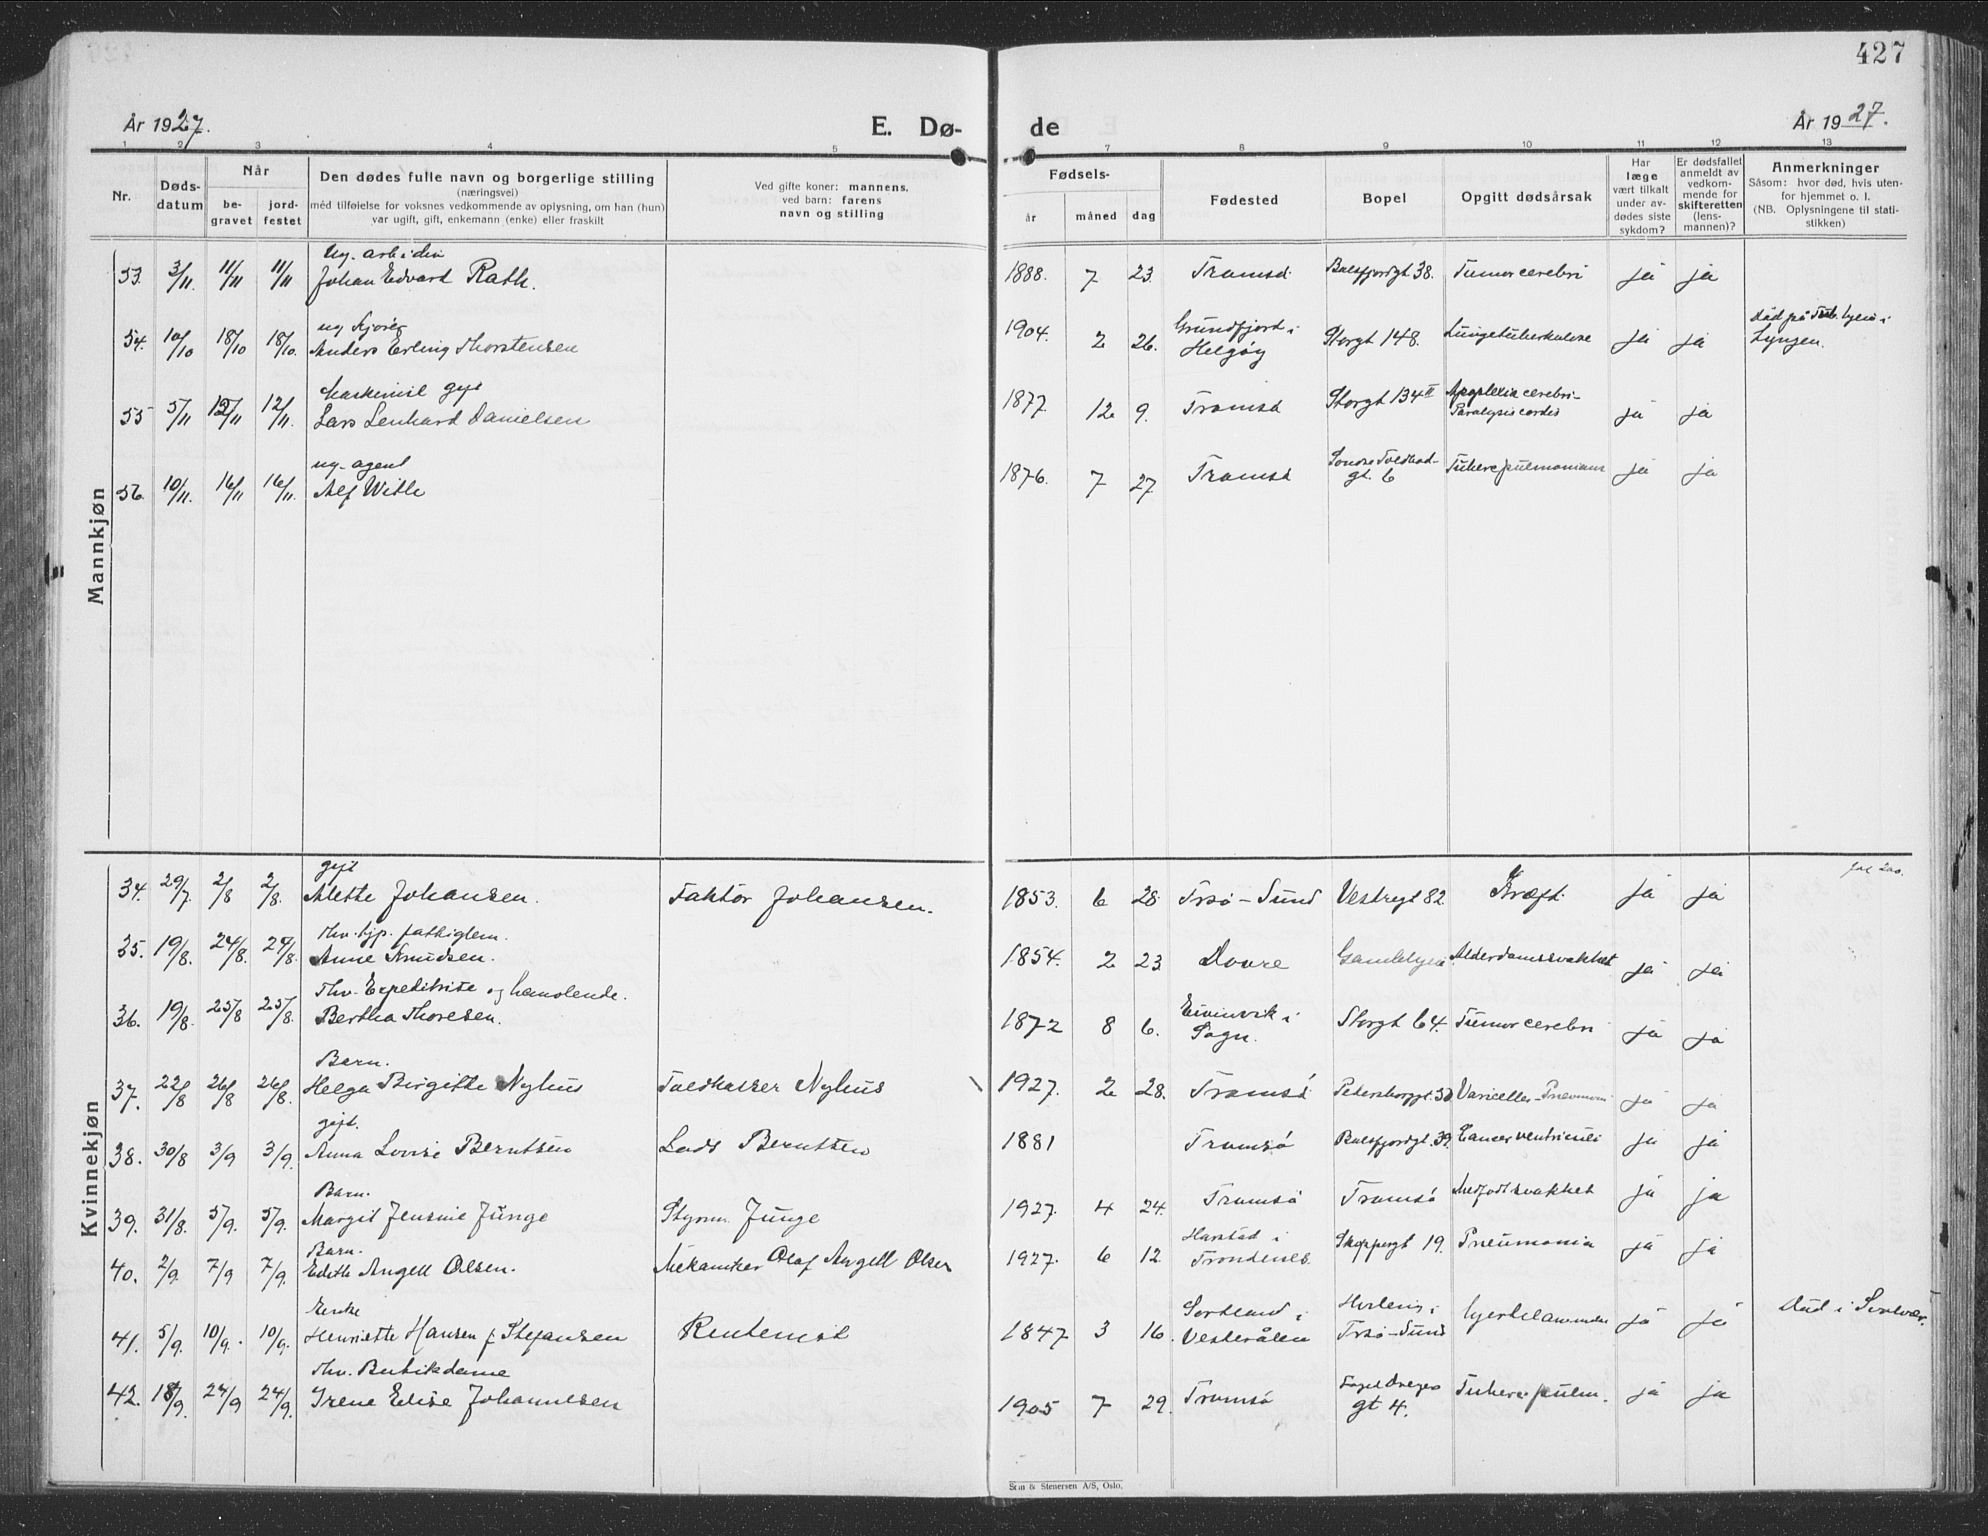 427
År 1927.
E. Dø-
de
År 1927.
1 2 3 4 5 7 8 9 10 11 12 13
Nr.
Døds-
datum
Når
be-
gravet
jord-
festet
Den dødes fulle navn og borgerlige stilling
(næringsvei)
med tilføielse for voksnes vedkommende av oplysning, om han (hun)
var ugift, gift, enkemann (enke) eller fraskilt
Ved gifte koner: mannens,
ved barn: farens
navn og stilling
Fødsels-
år
måned
dag
Fødested
Bopel
Opgitt dødsårsak
Har
læge
vært tilkalt
under av-
dødes siste
sykdom?
Er dødsfallet
anmeldt av
vedkom-
mende for
skifteretten
(lens-
mannen)?
Anmerkninger
Såsom: hvor død, hvis uten-
for hjemmet o. l.
(NB. Oplysningene til stati-
stikken)
Mannkjøn
ug. arbeider
53. 3/11. 11/11 11/11 Johan Edvard Rath. 1888. 7 23. Tromsø. Balsfjordgt 38. Tumor cerebri ja ja
54. 10/10 18/10 18/10. Anders Erling Thorstensen 1904. 2 26. Grundfjord i Storgt 148. Lungetuberkulose ja ja Død på Tub. hjem i
Helgøy
Lyngen.
Maskinist gift
55 5/11 12/11 12/11. Lars Lenhard Danielsen 1877. 12 9. Tromsø Storgt 134 II Apoplexia cerebri- ja ja
Paralysis cordis
ug. agent
56. 10/11. 16/11 16/11. Alf With 1876. 7 27. Tromsø Søndre Tollbod- ja ja
gt. 6
Kvinnekjøn
gift
34. 29/7. 2/8 2/8. Alette Johansen. Faktor Johansen. 1853. 6 28. Trsø-Sund Vestregt 82. Kræft. ja ja
35. 19/8. 24/8. 24/8. Anne Knudsen. 1854. 2 23. Dovre Gamlehjem Alderdomssvakhet ja ja
fhv. Expeditrise og handlende.
36. 19/8. 25/8 25/8. Bertha Thoresen. 1872 8 6. Eivinvik i Storgt 64. Tumor cerebri ja ja
Sogn.
Barn.
37. 22/8 26/8 26/8. Helga Birgitte Nyhus Toldkasser Nyhus 1927. 2 28. Tromsø Petersborggt. Variceller-Pneumoni ja ja
gift.
38. 30/8 3/9 3/9. Anna Lovise Berntsen Lods Berntsen 1881 Tromsø Balsfjordgt. 39. Cancer ventriculi ja ja
Barn.
39. 31/8. 5/9. 5/9. Margit Jensine Junge Styrm. Junge 1927. 4 24. Tromsø Tromsø Medfødt svakhet ja ja
Barn.
40. 2/9. 7/9 7/9. Edith Angell Olsen. Mekaniker Olaf Angell Olsen 1927. 6 12. Harstad i Skippergt 19. Pneumonia ja ja
Trondenes.
Enke
41. 5/9. 10/9. 10/9. Henriette Hansen f. Stefansen Rentenist 1847 3 16. Sortland i ja ja Død i Svolvær.
Vesterålen Trsø-Sund
fhv. Butikdame
42. 18/9. 24/9 24/9. Irene Elise Johannesen 1905 7 29. Tromsø ja ja
gt 4.
Sem & Stenersen A/S, Oslo.